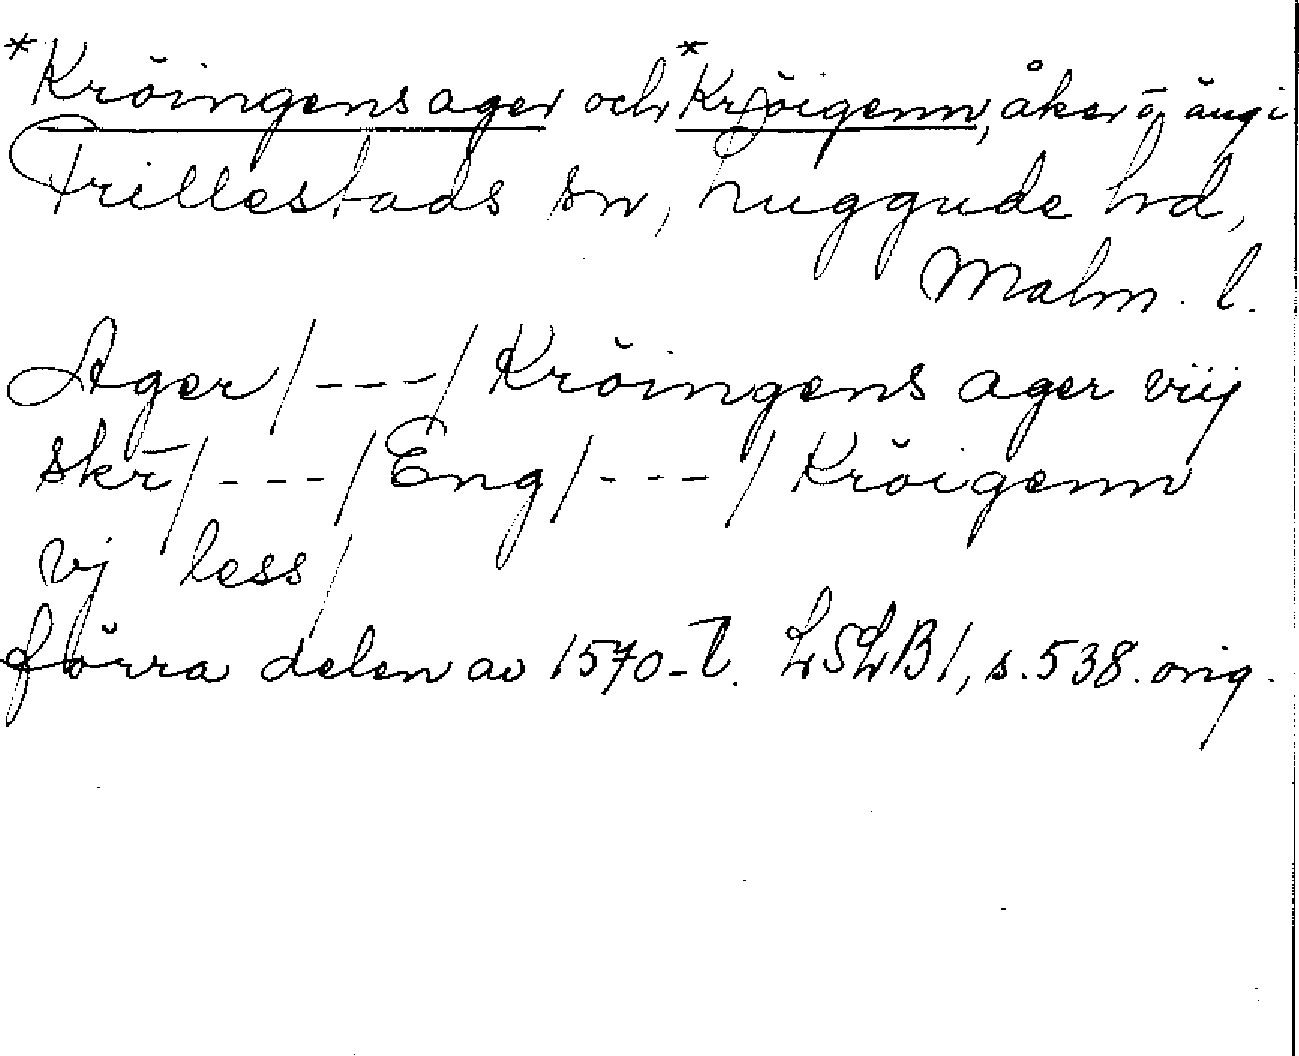 *Kröingens ager och *Kröigenn, åker o. äng i
Frillestads sn, Luggude hd,
Malm. l.
Ager /---/ Kröingens ager viij
skr̄ /---/ Eng /---/ Kröigenn
vj less /
förra delen av 1570-t. LSLB 1, s. 538. orig.